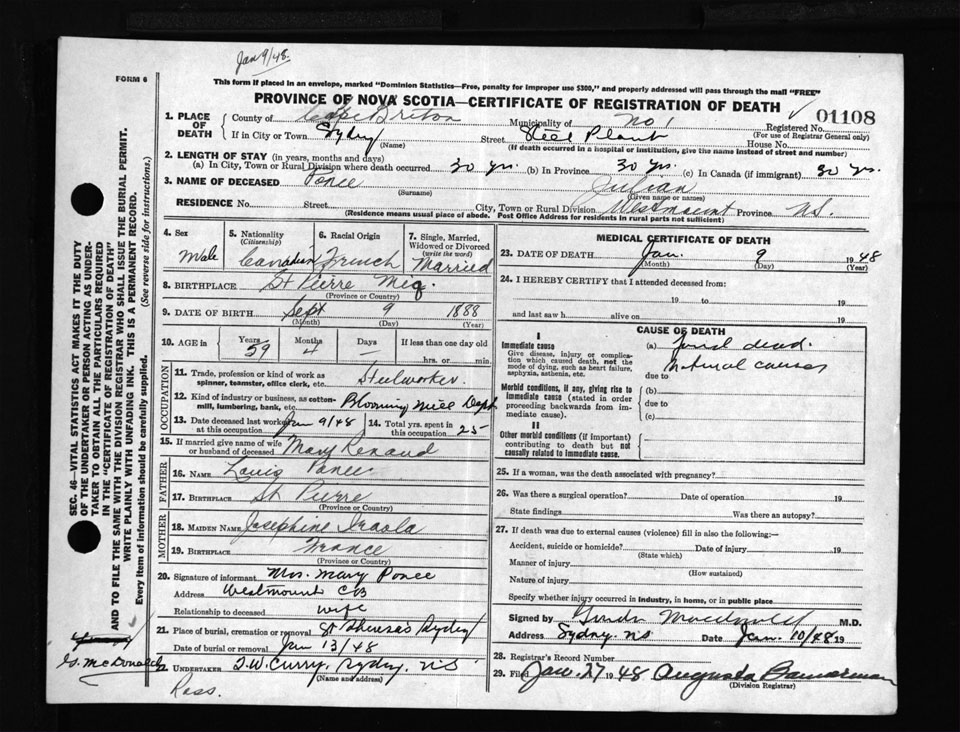 Jan 9/48
FORM 6
This form if placed in an envelope, marked "Dominion Statistics—Free, penalty for improper use $300," and properly addressed will pass through the mail "FREE"
PROVINCE OF NOVA SCOTIA—CERTIFICATE OF REGISTRATION OF DEATH
01108
1. PLACE OF DEATH County of Cape Breton Municipality of No 1 Registered No.
(For use of Registrar General only)
If in City or Town Sydney Street Steel Plant House No.
(Name) (If death occurred in a hospital or institution, give the name instead of street and number)
2. LENGTH OF STAY (in years, months and days)
(a) In City, Town or Rural Division where death occurred 30 yrs. (b) In Province 30 yrs. (c) In Canada (if immigrant) 30 yrs.
3. NAME OF DECEASED Ponce Julian
(Surname) (Given name or names)
RESIDENCE No. Street City, Town or Rural Division Westmount Province N.S.
(Residence means usual place of abode. Post Office Address for residents in rural parts not sufficient)
4. Sex Male
5. Nationality (Citizenship) Canadian
6. Racial Origin French
7. Single, Married, Widowed or Divorced (write the word) Married
8. BIRTHPLACE St Pierre Miq.
(Province or Country)
9. DATE OF BIRTH Sept 9 1888
(Month) (Day) (Year)
10. AGE in Years 59 Months 4 Days — If less than one day old
hrs. or min.
OCCUPATION
11. Trade, profession or kind of work as spinner, teamster, office clerk, etc. Steelworker
12. Kind of industry or business, as cotton-mill, lumbering, bank, etc. Blooming Mill Dept
13. Date deceased last worked at this occupation Jan 9/48
14. Total years spent in this occupation 25
15. If married give name of wife or husband of deceased Mary Renaud
FATHER
16. NAME Louis Ponce
17. BIRTHPLACE St Pierre
(Province or Country)
MOTHER
18. MAIDEN NAME Josephine
19. BIRTHPLACE France
(Province or Country)
20. Signature of informant Mrs. Mary Ponce
Address Westmount CB
Relationship to deceased wife
21. Place of burial, cremation or removal St Theresa's Sydney
Date of burial or removal Jan 13/48
22. UNDERTAKER T.W. Curry, Sydney, N.S.
(Name and Address)
MEDICAL CERTIFICATE OF DEATH
23. DATE OF DEATH Jan. 9 1948
(Month) (Day) (Year)
24. I HEREBY CERTIFY that I attended deceased from:
19 to 19
and last saw h alive on 19
CAUSE OF DEATH
I
Immediate cause
Give disease, injury or complication which caused death, not the mode of dying, such as heart failure, asphyxia, asthenia, etc.
(a) Found dead.
natural causes
due to
Morbid conditions, if any, giving rise to immediate cause (stated in order proceeding backwards from immediate cause).
(b)
due to
(c)
II
Other morbid conditions (if important) contributing to death but not causally related to immediate cause.
25. If a woman, was the death associated with pregnancy?
26. Was there a surgical operation? Date of operation 19
State findings Was there an autopsy?
27. If death was due to external causes (violence) fill in also the following:—
Accident, suicide or homicide? Date of injury 19
(State which)
Manner of injury
(How sustained)
Nature of injury
Specify whether injury occurred in industry, in home, or in public place
Signed by M.D.
Address Sydney N.S. Date Jan. 10/48 19
28. Registrar's Record Number
29. Filed Jan. 27 1948 Augusta Bannerman
(Division Registrar)
SEC. 46—VITAL STATISTICS ACT MAKES IT THE DUTY
OF THE UNDERTAKER OR PERSON ACTING AS UNDER-
TAKER TO OBTAIN ALL THE PARTICULARS REQUIRED
IN THE "CERTIFICATE OF REGISTRATION OF DEATH"
AND TO FILE THE SAME WITH THE DIVISION REGISTRAR WHO SHALL ISSUE THE BURIAL PERMIT.
WRITE PLAINLY WITH UNFADING INK. THIS IS A PERMANENT RECORD.
Every item of information should be carefully supplied. (See reverse side for instructions.)
G. McDonald
Ross.